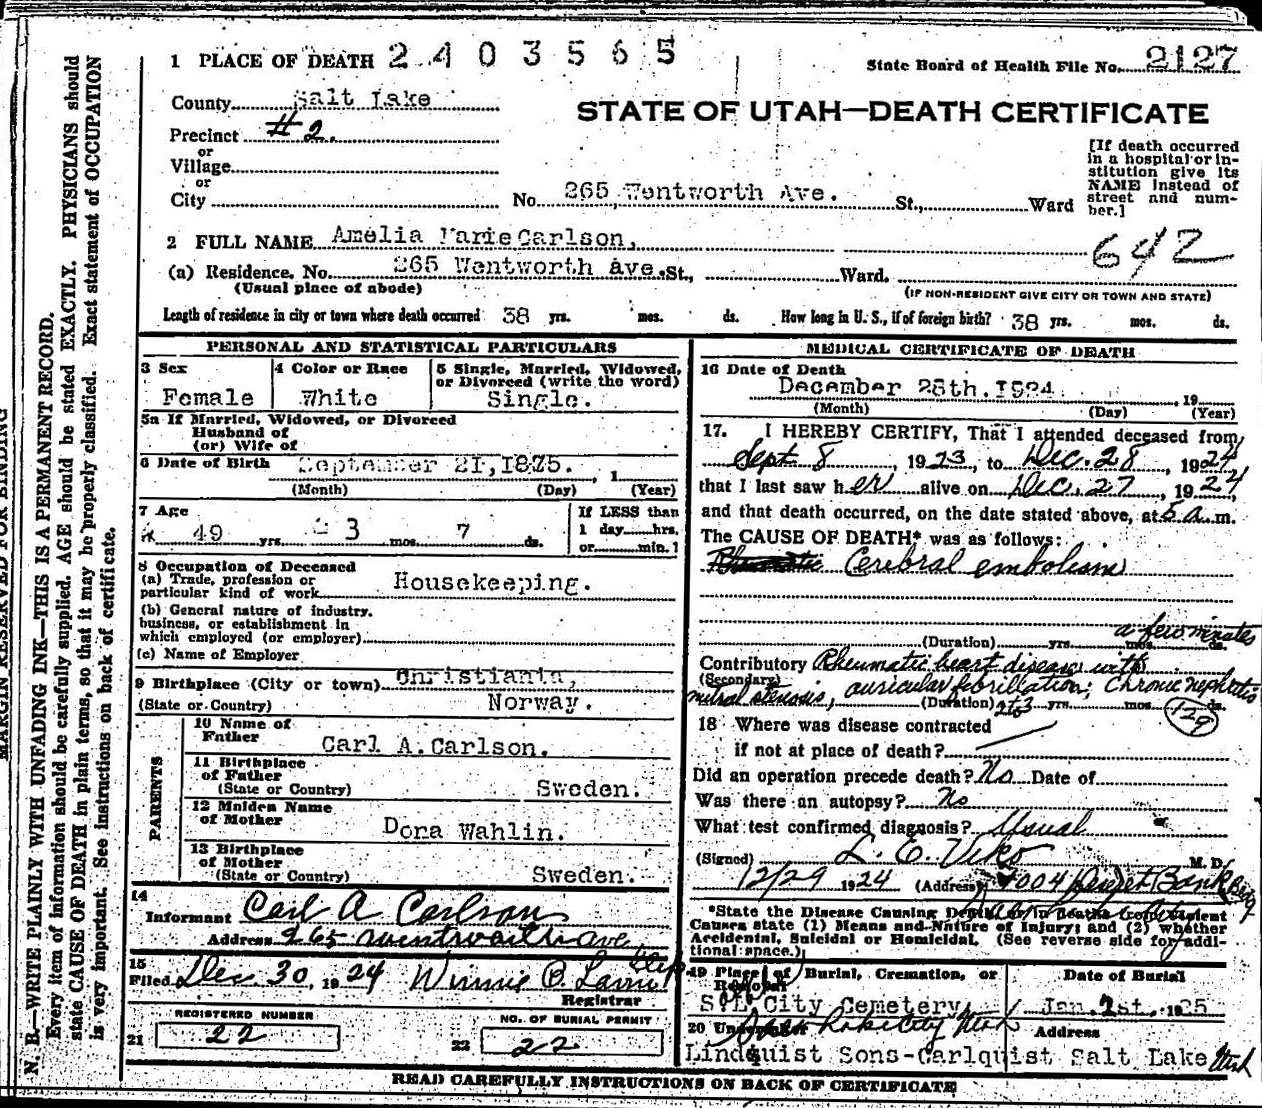 1 PLACE OF DEATH 2403565
State Board of Health File No. 2127
County Salt Lake
STATE OF UTAH—DEATH CERTIFICATE
Precinct #2.
or
Village
or
City
No. 265 Wentworth Ave. St., Ward
[If death occurred
in a hospital or in-
stitution give its
NAME instead of
street and num-
ber.]
2 FULL NAME Amelia Marie Carlson,
642
(a) Residence. No. 265 Wentworth Ave. St., Ward.
(Usual place of abode)
(IF NON-RESIDENT GIVE CITY OR TOWN AND STATE)
Length of residence in city or town where death occurred 38 yrs. mos. ds. How long in U. S., if of foreign birth? 38 yrs. mos. ds.
PERSONAL AND STATISTICAL PARTICULARS
3 Sex
Female
4 Color or Race
White
5 Single, Married, Widowed,
or Divorced (write the word)
Single.
5a If Married, Widowed, or Divorced
Husband of
(or) Wife of
6 Date of Birth September 21, 1875. , 1
(Month) (Day) (Year)
7 Age
49 yrs. 3 mos. 7 ds.
If LESS than
1 day hrs.
or min.?
8 Occupation of Deceased
(a) Trade, profession or
particular kind of work Housekeeping.
(b) General nature of industry,
business, or establishment in
which employed (or employer)
(c) Name of Employer
9 Birthplace (City or town) Christiania,
(State or Country) Norway.
PARENTS
10 Name of
Father Carl A. Carlson.
11 Birthplace
of Father
(State or Country) Sweden.
12 Maiden Name
of Mother Dora Wahlin.
13 Birthplace
of Mother
(State or Country) Sweden.
14
Informant Carl A Carlson
Address 265 Wentworth ave
15
Filed Dec. 30, 1924 Winnie B.
Registrar
REGISTERED NUMBER
21 22
NO. OF BURIAL PERMIT
22 22
MEDICAL CERTIFICATE OF DEATH
16 Date of Death
December 28th. 1924. , 19
(Month) (Day) (Year)
17. I HEREBY CERTIFY, That I attended deceased from
Sept 8, 1923, to Dec. 28, 1924
that I last saw her alive on Dec. 27, 1924,
and that death occurred, on the date stated above, at 5 a m.
The CAUSE OF DEATH* was as follows:
Rheumatic Cerebral embolism
a few minutes
(Duration) yrs. mos. ds.
Contributory Rheumatic heart disease with
(Secondary)
mitral stenosis, auricular fibrillation; Chronic nephritis
(Duration) 2 to 3 yrs. mos. ds.
129
18 Where was disease contracted
if not at place of death?
Did an operation precede death? No Date of
Was there an autopsy? No
What test confirmed diagnosis? Usual
(Signed) L. E. Viko M. D.
12/29 1924 (Address) 1004 Deseret Bank Bldg
*State the Disease Causing Death, or in deaths from violent
Causes state (1) Means and Nature of Injury; and (2) whether
Accidental, Suicidal or Homicidal. (See reverse side for addi-
tional space.)
19 Place of Burial, Cremation, or
Removal
S L City Cemetery
Salt Lake City Utah
Date of Burial
Jan. 1st. 1925
20 Undertaker
Address
Lindquist Sons-Carlquist Salt Lake Utah
READ CAREFULLY INSTRUCTIONS ON BACK OF CERTIFICATE
MARGIN RESERVED FOR BINDING
N. B.—WRITE PLAINLY WITH UNFADING INK—THIS IS A PERMANENT RECORD.
Every item of information should be carefully supplied. AGE should be stated EXACTLY. PHYSICIANS should
state CAUSE OF DEATH in plain terms, so that it may be properly classified. Exact statement of OCCUPATION
is very important. See instructions on back of certificate.